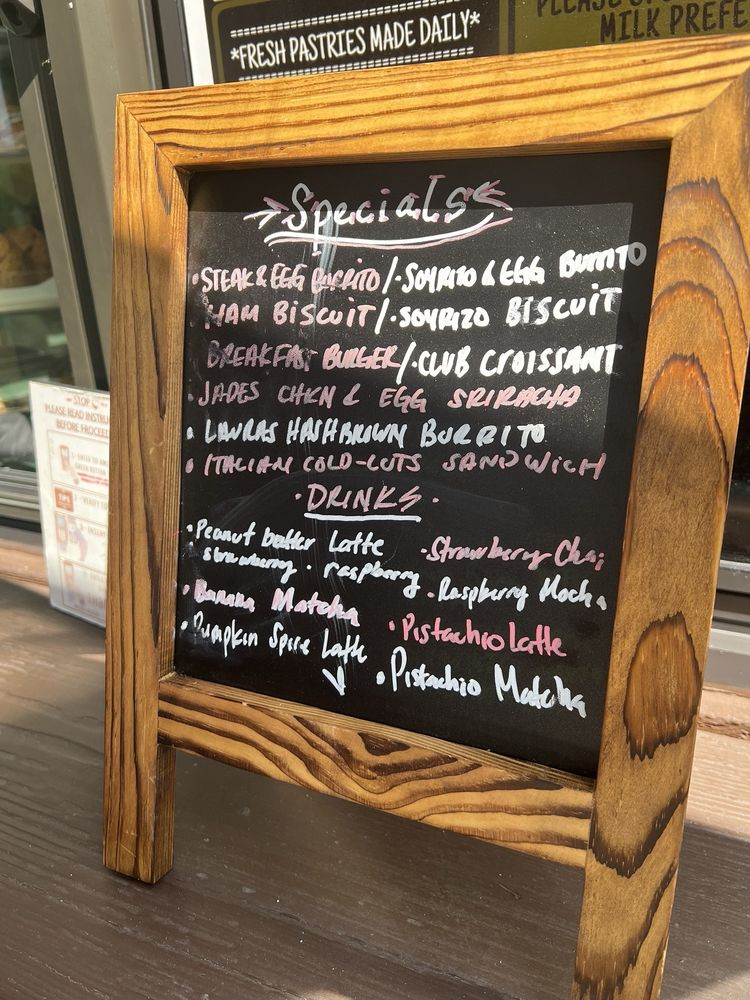 *FRESH PASTRIES MADE DAILY*
MILK PREFE
Specials
• STEAK & EGG BURRITO / • SOYRIZO & EGG BURRITO
HAM BISCUIT / • SOYRIZO BISCUIT
BREAKFAST BURGER / • CLUB CROISSANT
• JADES CHKN & EGG SRIRACHA
• LAURAS HASHBROWN BURRITO
• ITALIAN COLD-CUTS SANDWICH
• DRINKS •
• Peanut butter Latte • Strawberry Chai
strawberry • raspberry • Raspberry Mocha
• Banana Matcha • Pistachio Latte
• Pumpkin Spice Latte • Pistachio Matcha
STOP
PLEASE READ INSTRU
BEFORE PROCEED